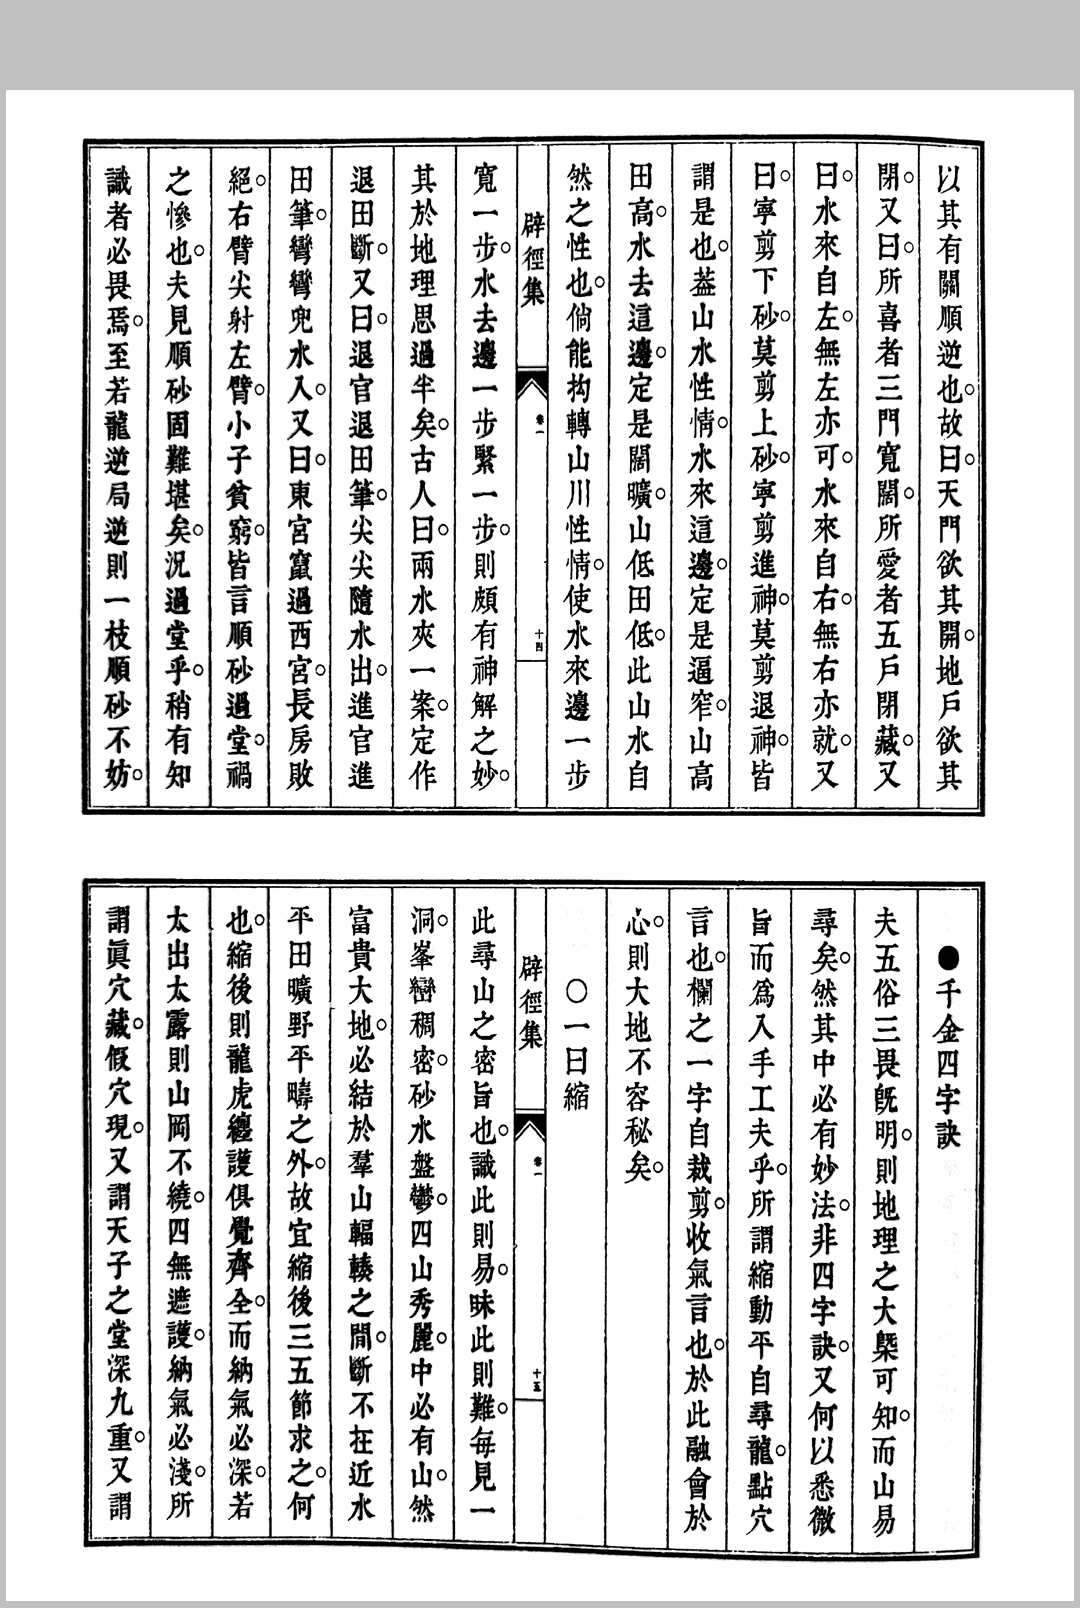 以其有關順逆也故曰天門欲其開地戶欲其
閉又曰所喜者三門寬闊所愛者五戶閉藏又
曰水來自左無左亦可水來自右無右亦就又
曰寧剪下砂莫剪上砂寧剪進神莫剪退神皆
謂是也葢山水性情水來這邊定是逼窄山高
田高水去這邊定是闊曠山低田低此山水自
然之性也倘能抝轉山川性情使水來邊一步
辟徑集
卷一
十四
寬一步水去邊一步緊一步則頗有神解之妙
其於地理思過半矣古人曰兩水夾一案定作
退田斷又曰退官退田筆尖尖隨水出進官進
田筆彎彎兜水入又曰東宮竄過西宮長房敗
絕右臂尖射左臂小子貧窮皆言順砂過堂禍
之慘也夫見順砂固難堪矣況過堂乎稍有知
識者必畏焉至若龍逆局逆則一枝順砂不妨
●千金四字訣
夫五俗三畏旣明則地理之大槩可知而山易
尋矣然其中必有妙法非四字訣又何以悉微
旨而爲入手工夫乎所謂縮動平自尋龍點穴
言也欄之一字自裁剪收氣言也於此融會於
心則大地不容秘矣
○一曰縮
辟徑集
卷一
十五
此尋山之密旨也識此則易昧此則難每見一
洞峯巒稠密砂水盤鬱四山秀麗中必有山然
富貴大地必結於羣山輻輳之間斷不在近水
平田曠野平疇之外故宜縮後三五節求之何
也縮後則龍虎纏護俱覺齊全而納氣必深若
太出太露則山岡不繞四無遮護納氣必淺所
謂眞穴藏假穴現又謂天子之堂深九重又謂